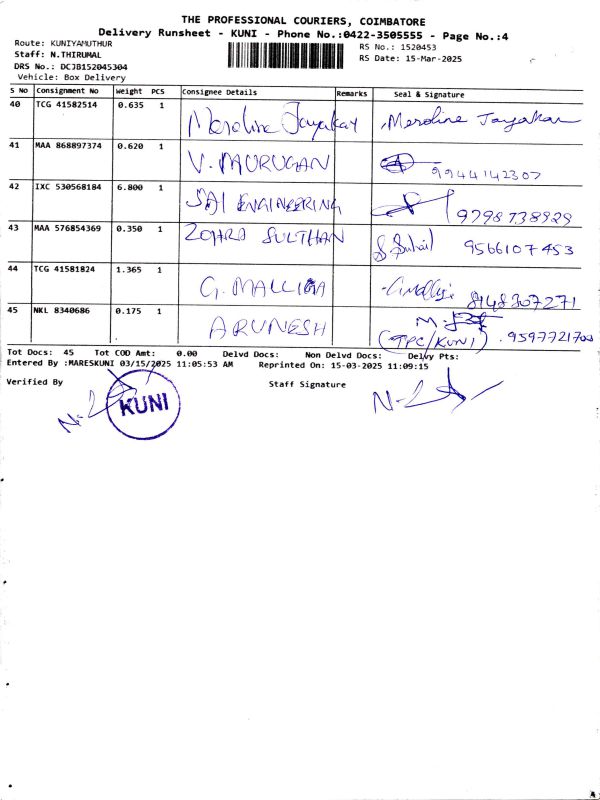 THE PROFESSIONAL COURIERS, COIMBATORE
Delivery Runsheet - KUNI - Phone No.:0422-3505555 - Page No.:4
Route: KUNIYAMUTHUR
RS No.: 1520453
Staff: N.THIRUMAL
RS Date: 15-Mar-2025
DRS No.: DCJB152045304
Vehicle: Box Delivery
S No Consignment No Weight PCS Consignee Details Remarks Seal & Signature
40 TCG 41582514 0.635 1 Meroline Jayakar Meroline Jayakar
41 MAA 868897374 0.620 1 V. MURUGAN 9944142307
42 IXC 530568184 6.800 1 SAI ENGINEERING 9798738929
43 MAA 576854369 0.350 1 ZOHRA SULTHAN S. Suhail 9566107453
44 TCG 41581824 1.365 1 G. MALLIGA 8148307271
45 NKL 8340686 0.175 1 ARUNESH
(TPC/KUNI) . 9597721703
Tot Docs: 45 Tot COD Amt: 0.00 Delvd Docs: Non Delvd Docs: Delvy Pts:
Entered By :MARESKUNI 03/15/2025 11:05:53 AM Reprinted On: 15-03-2025 11:09:15
Verified By Staff Signature
KUNI